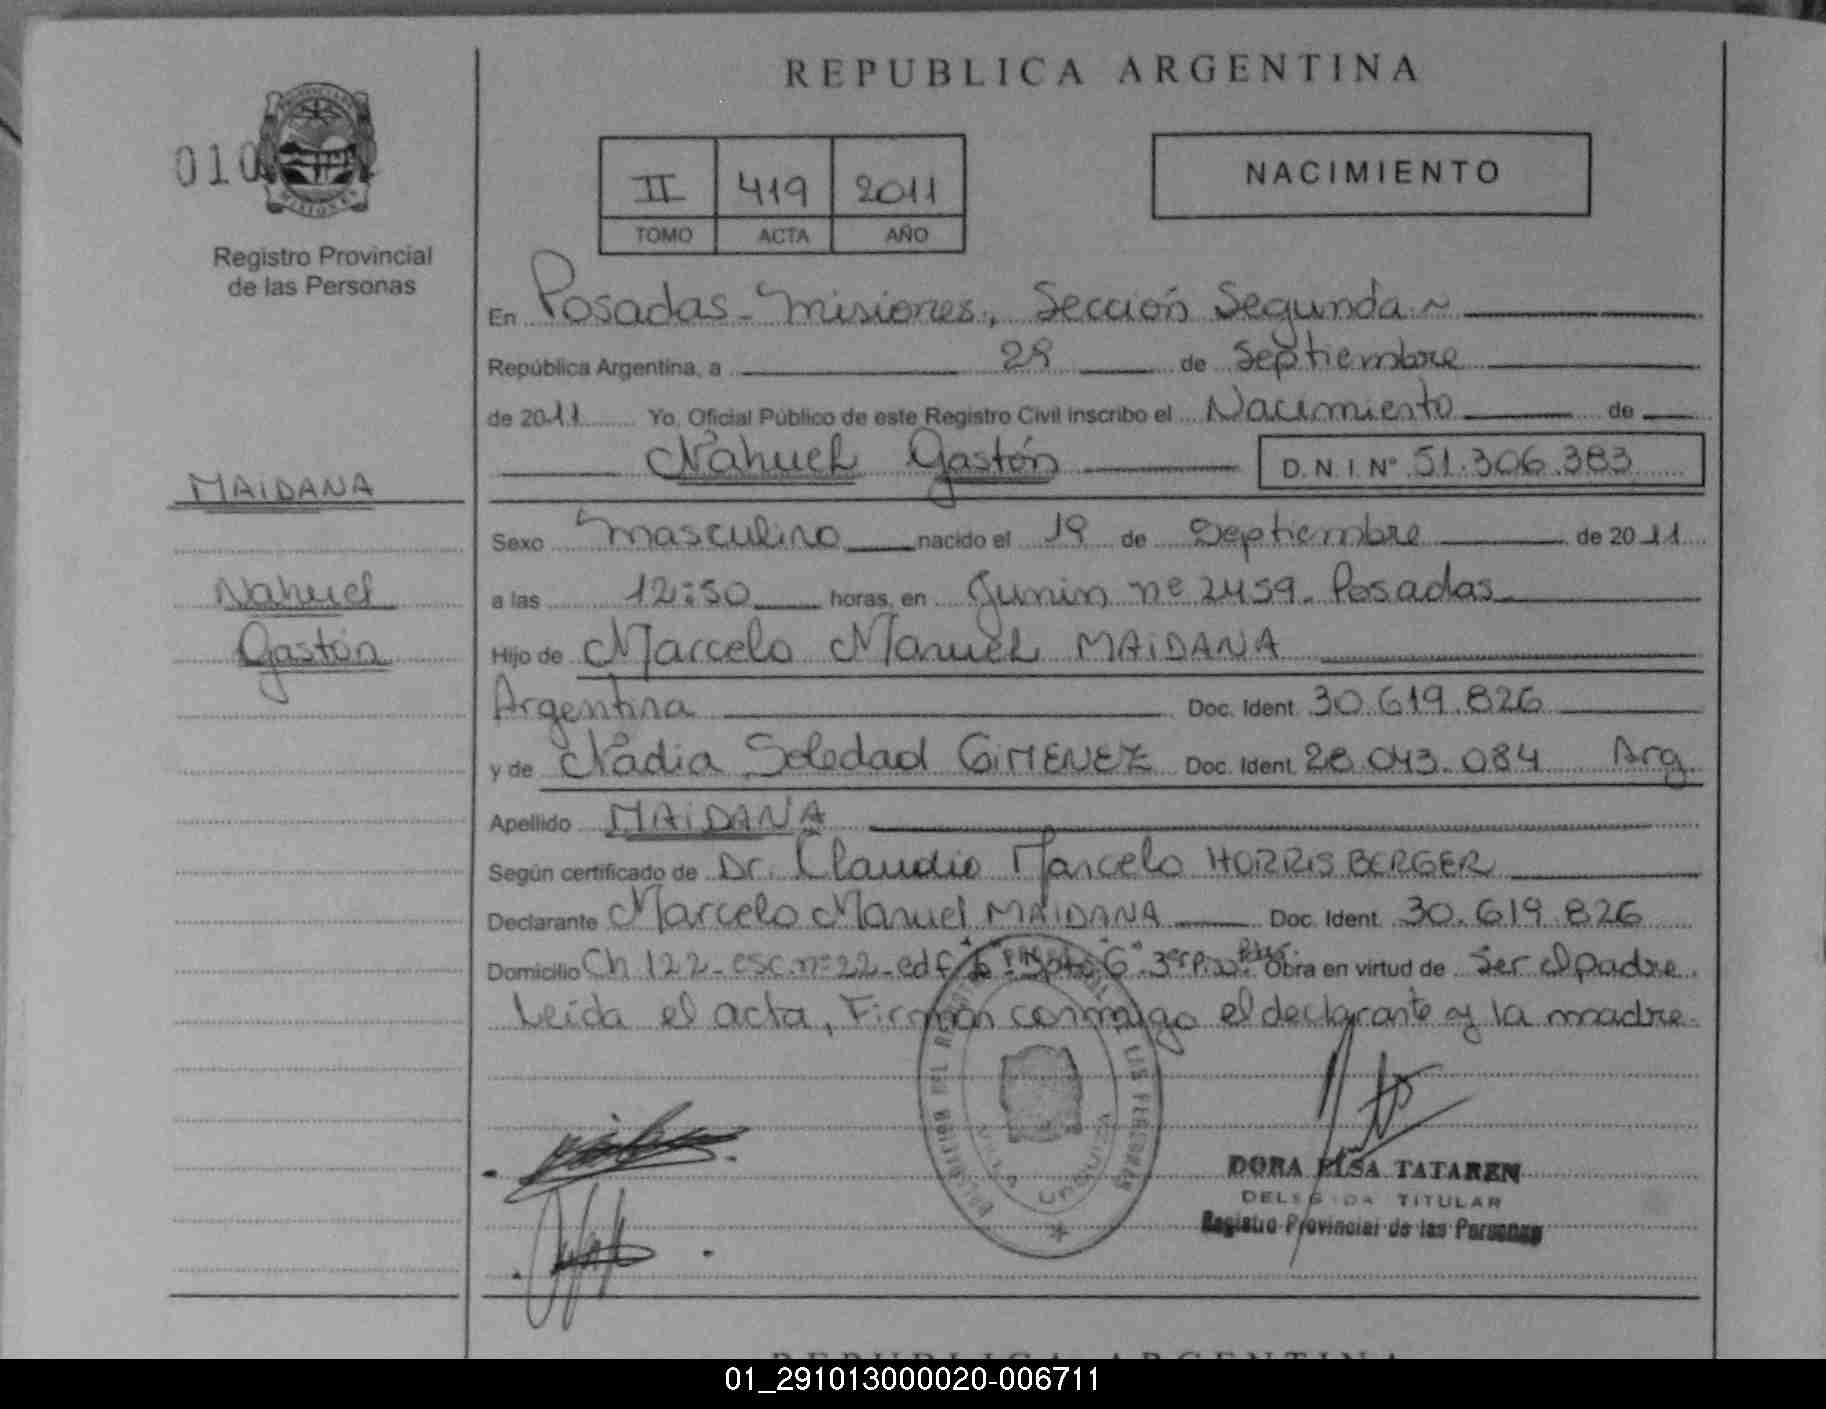 REPUBLICA ARGENTINA
010
MISIONES
Registro Provincial
de las Personas
II 419 2011
TOMO ACTA AÑO
NACIMIENTO
En Posadas - Misiones, Sección Segunda ~
República Argentina, a 29 de Septiembre
de 2011 Yo, Oficial Público de este Registro Civil inscribo el Nacimiento de
Nahuel Gastón D.N.I. Nº 51.306.383
MAIDANA
Nahuel
Gastón
Sexo Masculino nacido el 19 de Septiembre de 2011
a las 12:50 horas, en Junin nº 2459. Posadas
Hijo de Marcelo Manuel MAIDANA
Argentina Doc. Ident. 30.619.826
y de Nadia Soledad GIMENEZ Doc. Ident. 28.043.084 Arg
Apellido MAIDANA
Según certificado de Dr. Claudio Marcelo HORRISBERGER
Declarante Marcelo Manuel MAIDANA Doc. Ident. 30.619.826
Domicilio Ch 122 - esc. nº 22 - edf. 3er Piso Obra en virtud de Ser el padre.
Leída el acta, Firman conmigo el declarante y la madre.
VILLA URQUIZA
DORA ELSA TATAREN
DELEGADA TITULAR
Registro Provincial de las Personas
REPUBLICA ARGENTINA
01_291013000020-006711